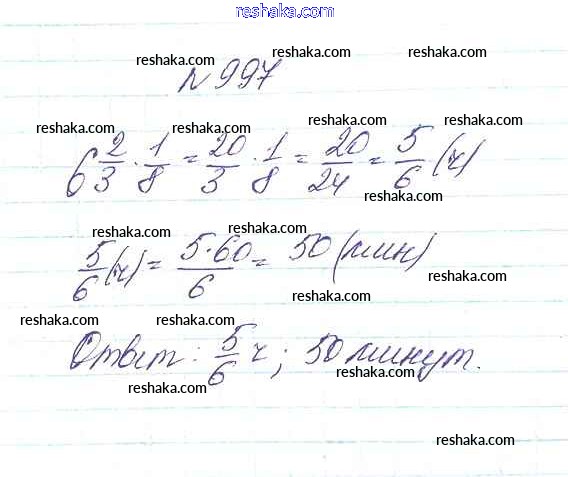 reshaka.com
reshaka.com reshaka.com reshaka.com
№ 997
reshaka.com reshaka.com reshaka.com
6 2/3 · 1/8 = 20/3 · 1/8 = 20/24 = 5/6 (ч)
reshaka.com
reshaka.com reshaka.com
5/6 (ч) = 5·60/6 = 50 (мин)
reshaka.com
reshaka.com
reshaka.com reshaka.com
Ответ: 5/6 ч; 50 минут.
reshaka.com
reshaka.com
reshaka.com